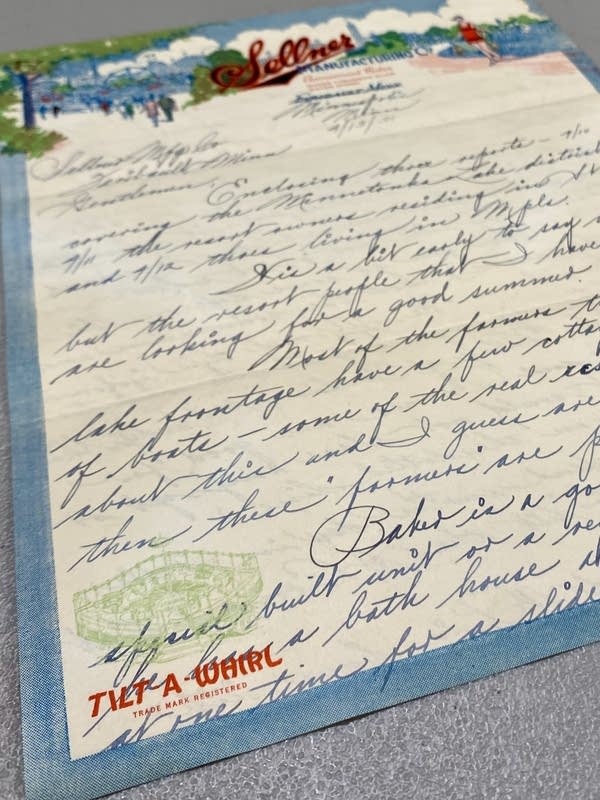 Sellner
MANUFACTURING Co.
Minneapolis
Minn
Sellner Mfg Co
Faribault, Minn
Gentlemen:
Enclosing three reports - 4/10
covering the Minnetonka Lake district
4/11 the resort owners residing in St
and 4/12 those living in Mpls.
It is a bit early to say
but the resort people that I have
are looking for a good summer.
Most of the farmers
lake frontage have a few cottag
of boats - some of the real res
about this and I guess are
then these "farmers" are
Baker is a go
special built unit or a re
he has a bath house a
at one time for a slide
TILT-A-WHIRL
TRADE MARK REGISTERED